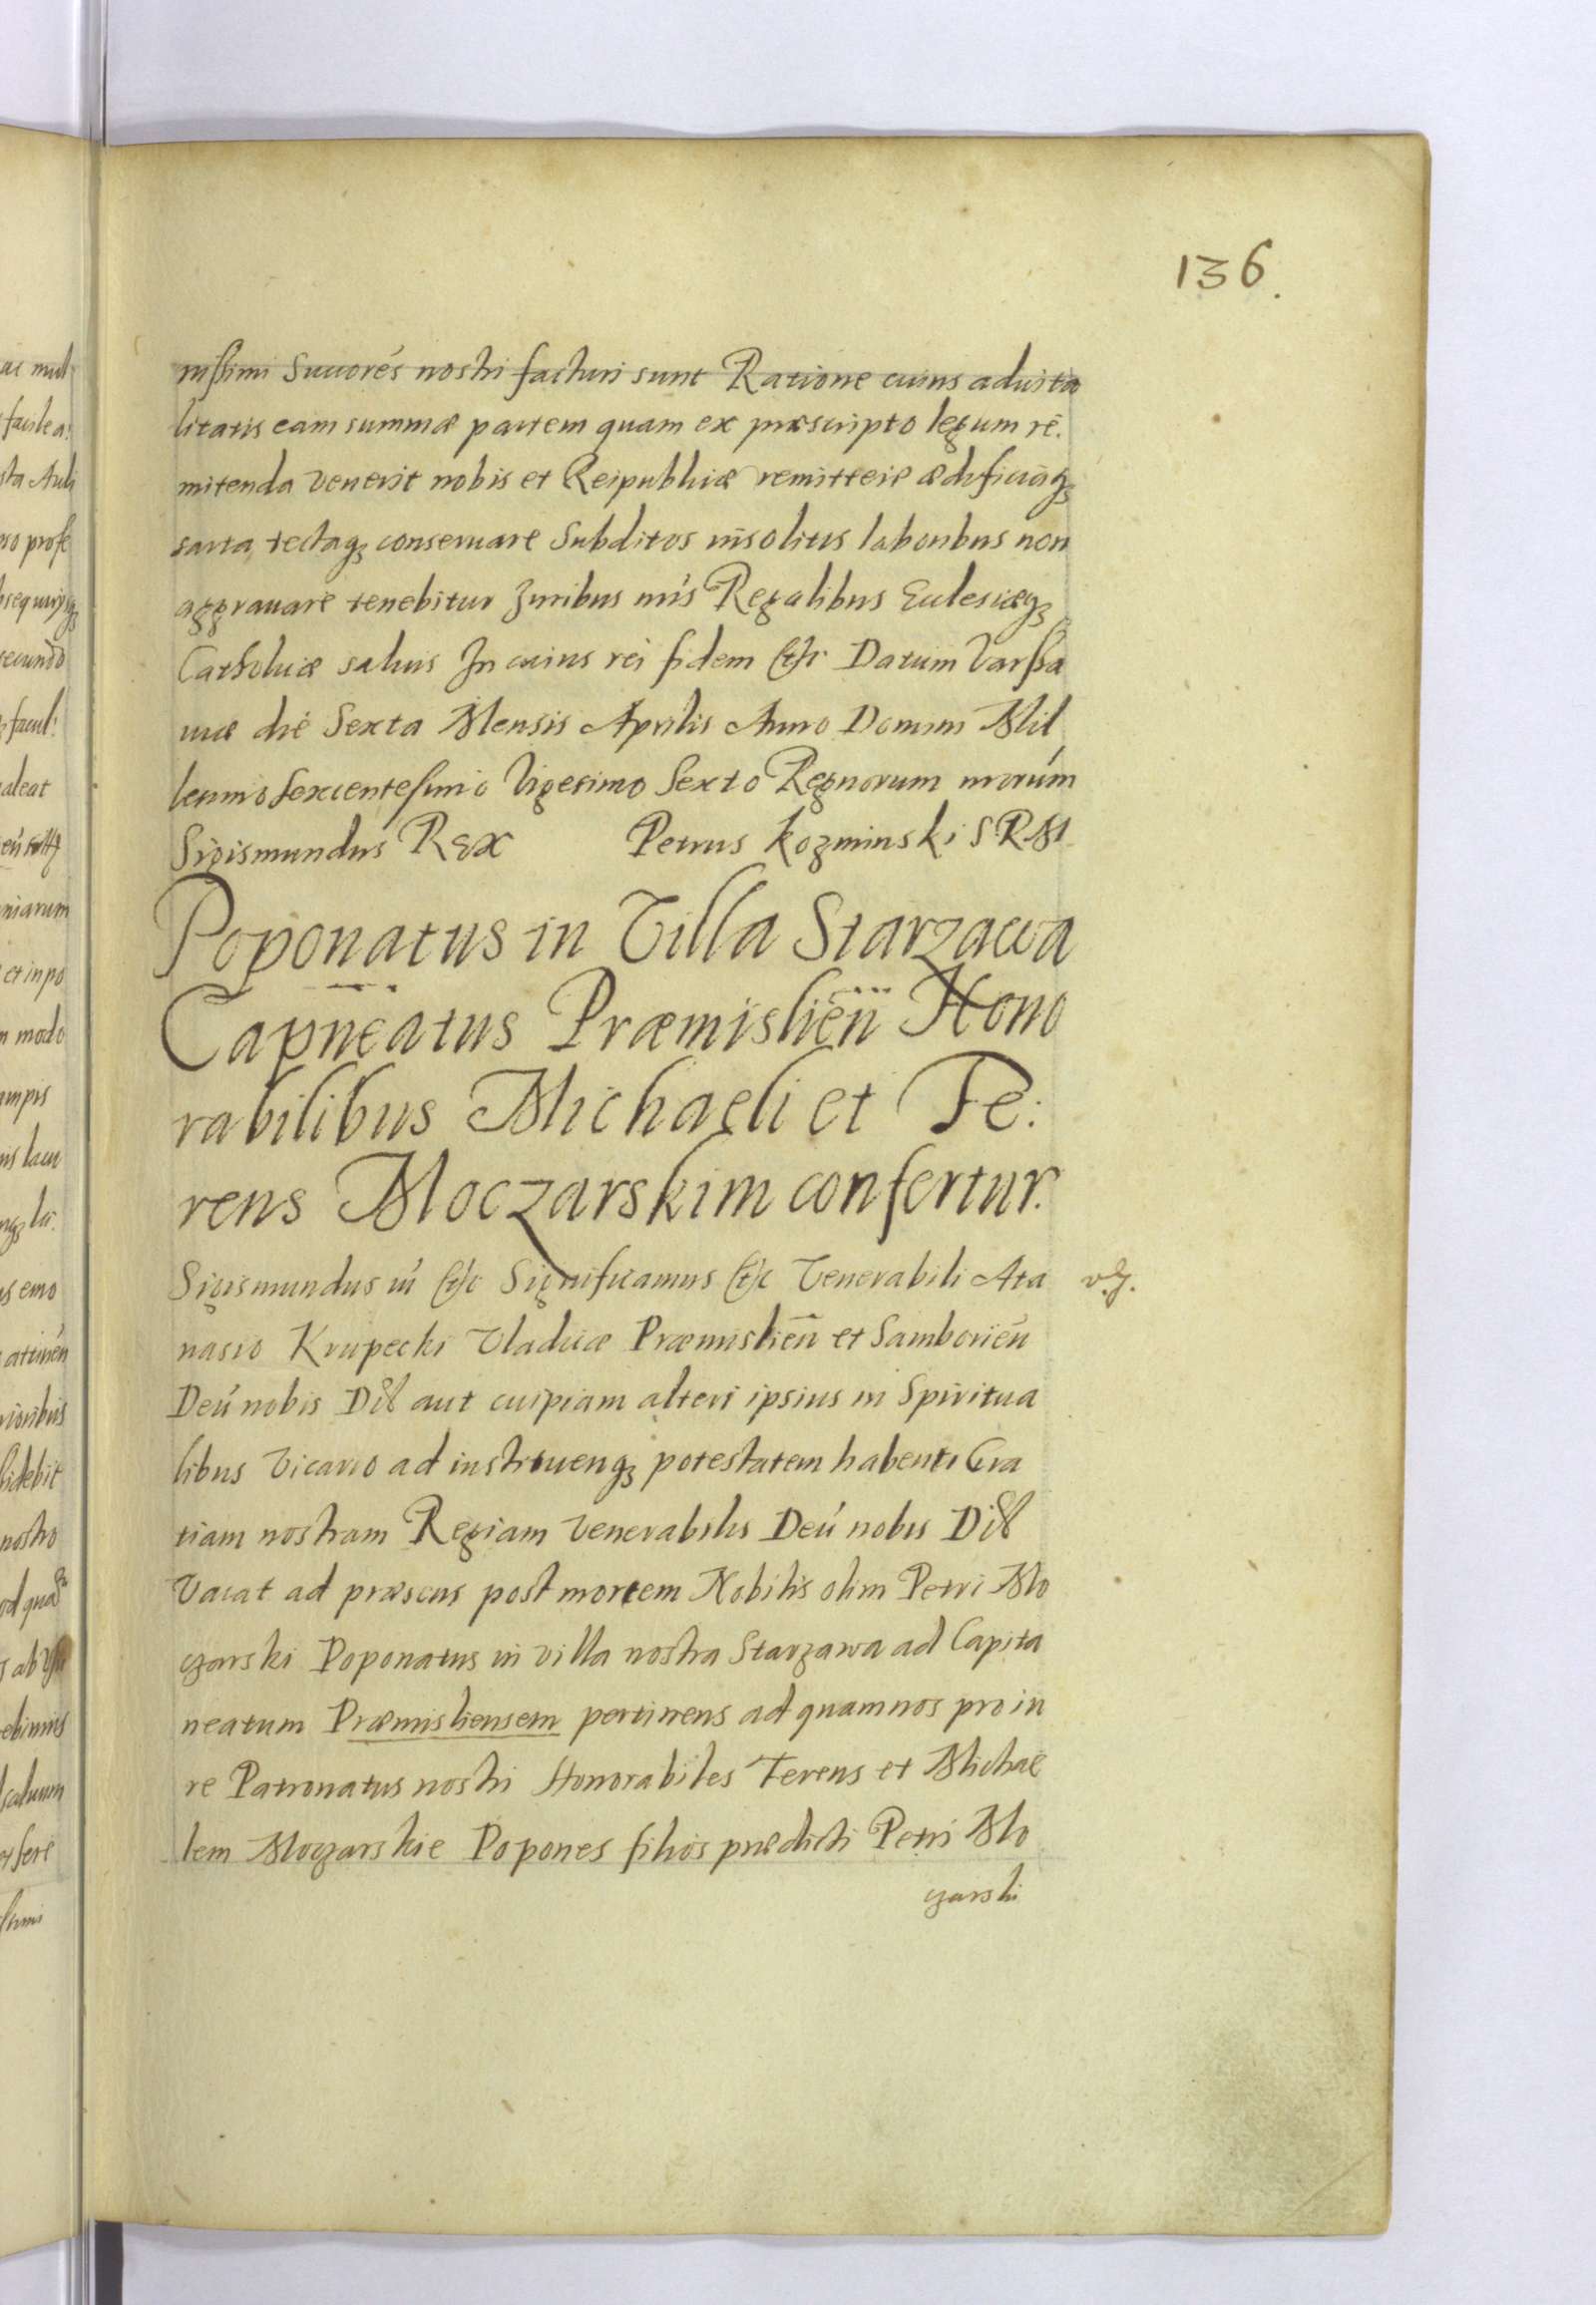 136.
nissimi Succorés nostri facturi sunt Ratione cuius aduita
litatis eam summæ partem quam ex præscripto legum re.
mitenda venerit nobis et Reipublicæ remittere ædificiaq3
sarta tectaq3 conseruare Subditos insolitis laboribus non
aggrauare tenebitur Juribus nris Regalibus Eclesiæq3
Catholicæ saluis In cuius rei fidem &c Datum Varssa
uiæ die Sexta Mensis Aprilis Anno Domini Mil
lesimo sexcentesimo Vigesimo Sexto Regnorum nrorum
Sigismundus Rex Petrus Kozminski S R M
Poponatus in Villa Starzawa
Capneatus Præmisliēn Hono
rabilibus Michaeli et Te:
rens Moczarskim confertur.
Sigismundus iii &c Significamus &c Venerabili Ata
nasio Krupecki Vladicæ Præmisliēn et Samborien
Deú nobis Dil aut cuipiam alteri ipsius in Spiritua
libus Vicario ad instituenq3 potestatem habenti Gra
tiam nostram Regiam Venerabilis Deú nobis Dil
Vacat ad præsens post mortem Nobilis olim Petri Mo
czarski Poponatus in villa nostra Starzawa ad Capita
neatum Præmisliensem pertinens ad quam nos pro iu
re Patronatus nostri Honorabiles Terens et Michae
lem Moczarskie Popones filios prædicti Petri Mo
czarski